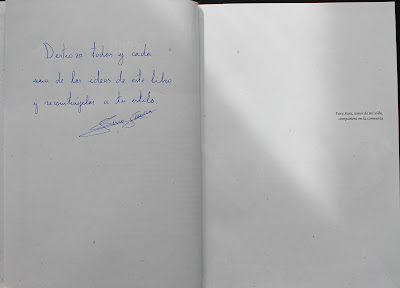 Destroza todas y cada
una de las ideas de este libro
y reconstrúyelas a tu estilo.
amor de mi vida,
compañera en la comedia